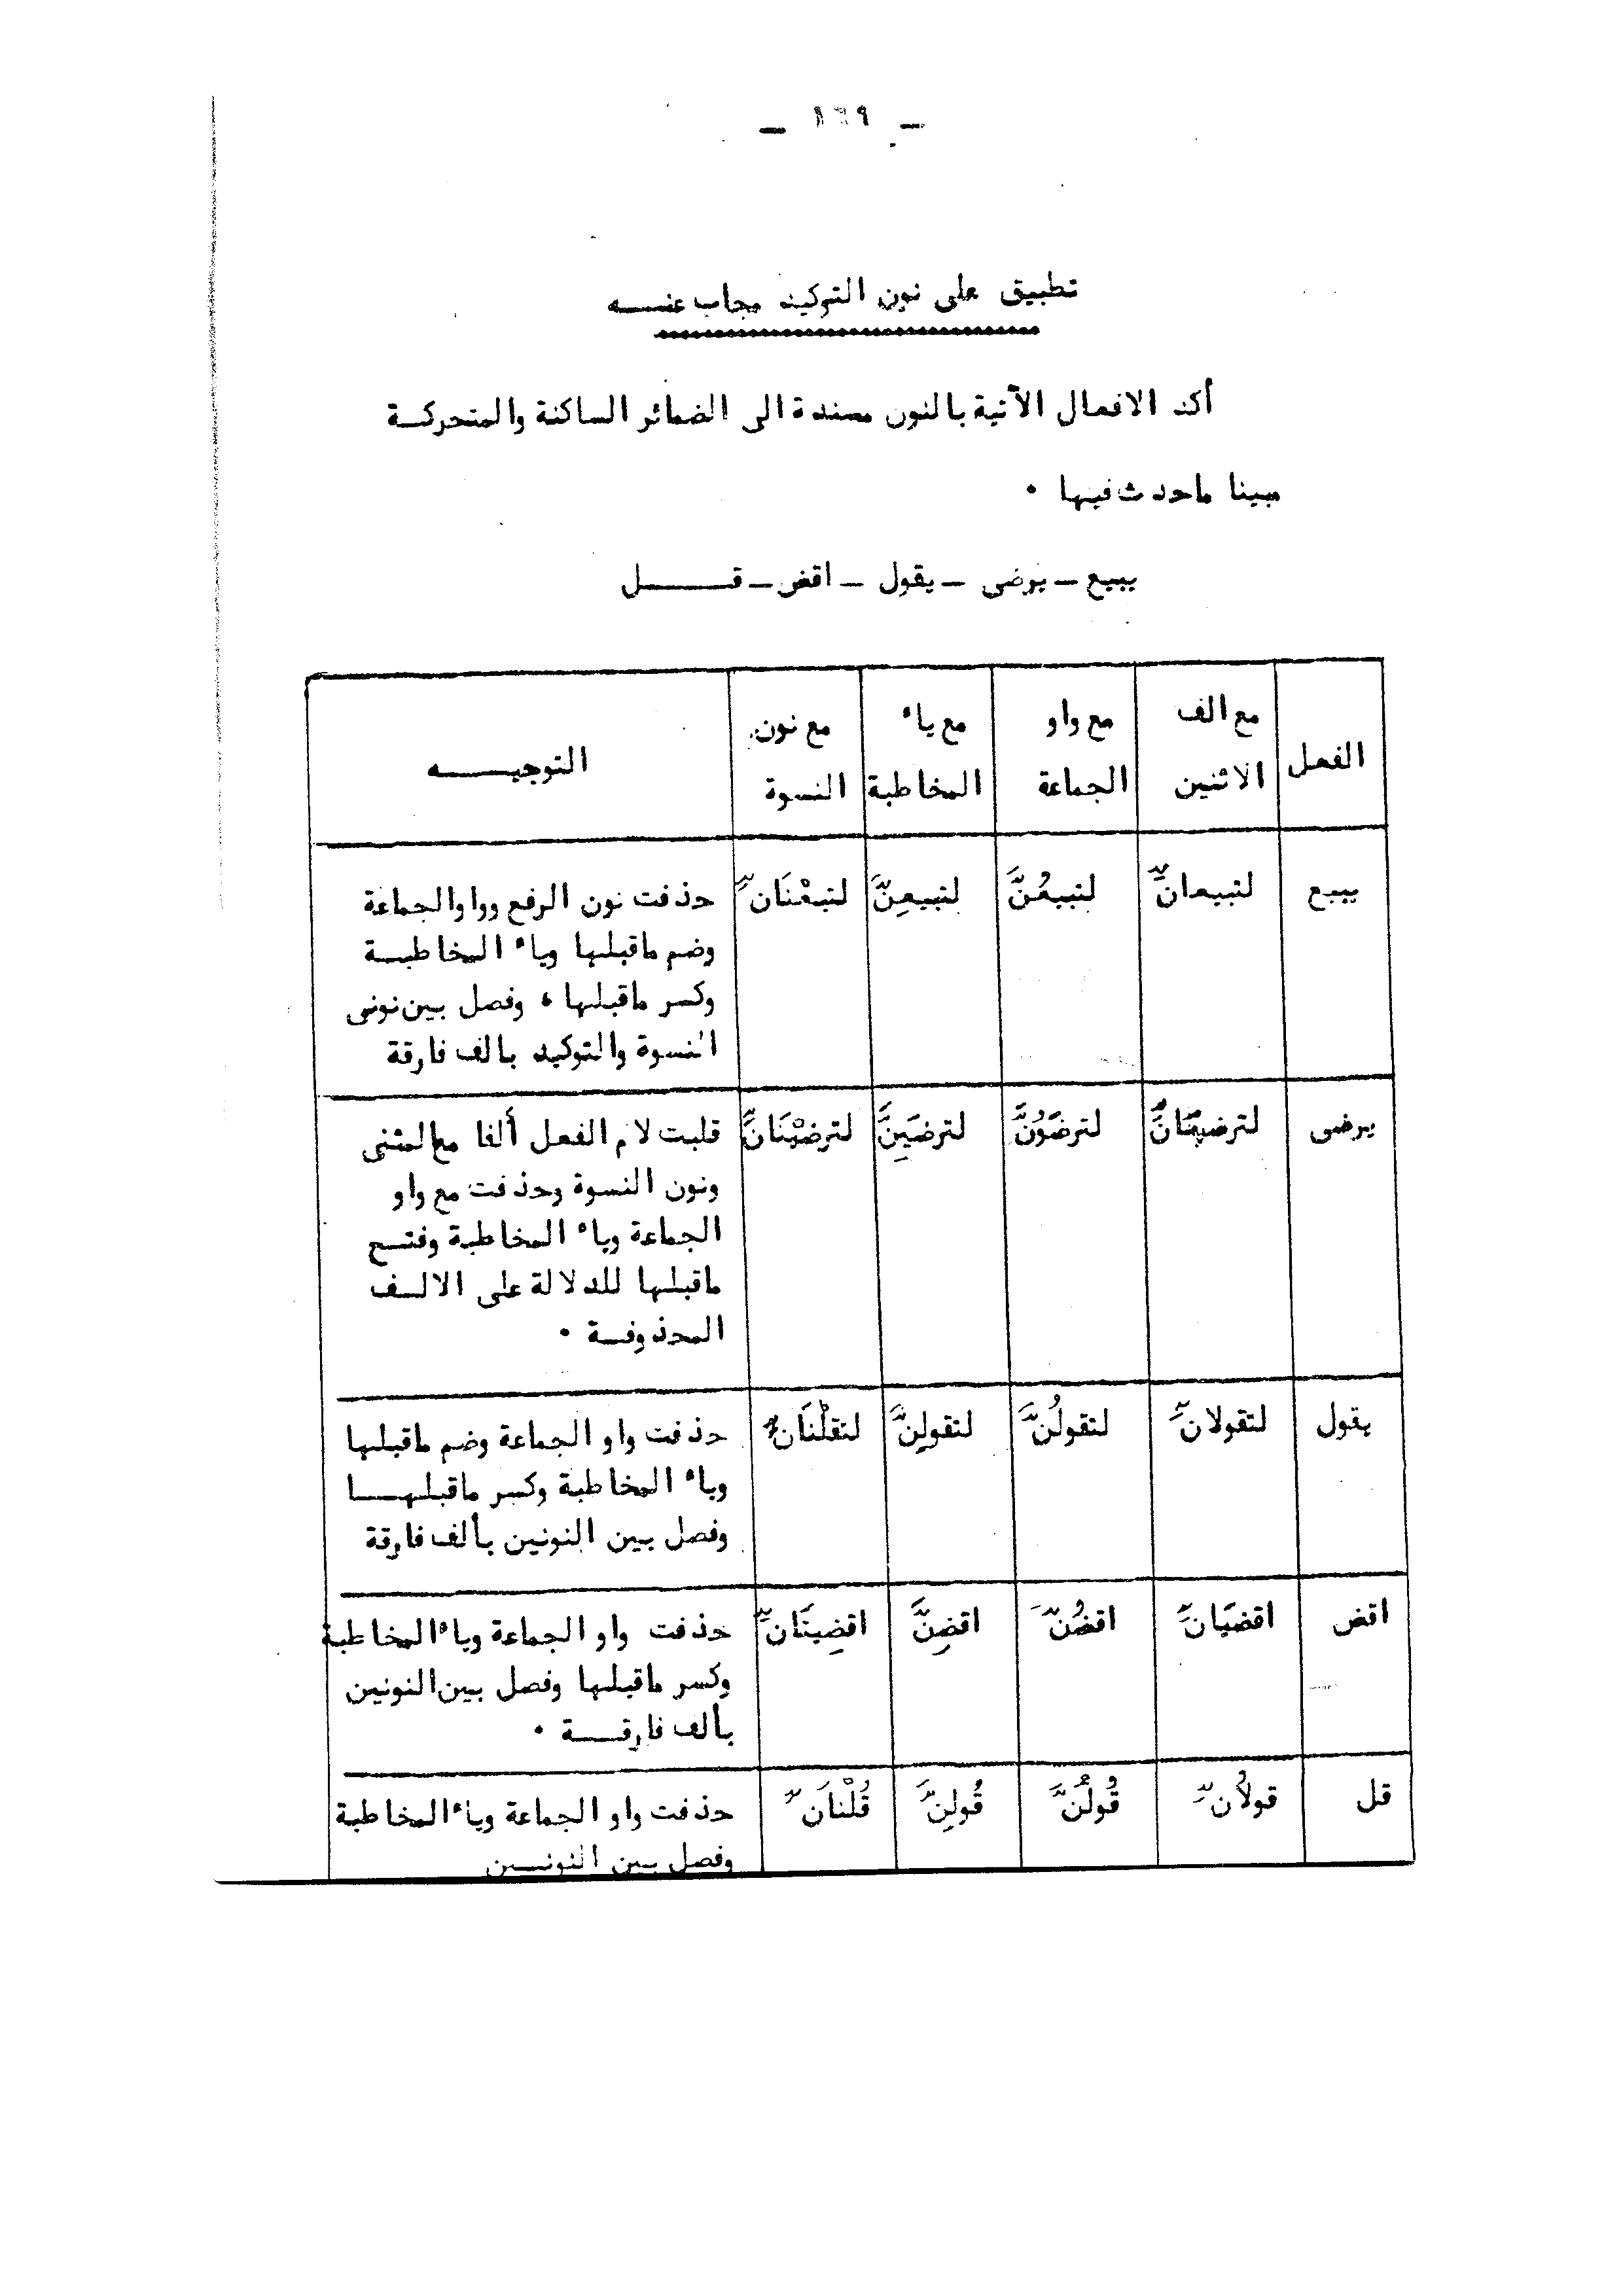 - ١٦٩ -
تطبيق على نون التوكيد مجاب عنـــه
أكد الافعال الآتية بالنون مسندة الى الضمائر الساكنة والمتحركـة
مبينا ماحدث فيها .
يبيع - يرضى - يقول - اقض - قـــــل
الفعل | مع الف الاثنين | مع واو الجماعة | مع ياء المخاطبة | مع نون النسوة | التوجيـــــه
يبيع | لتبيعانِّ | لتبيعُنَّ | لتبيعِنَّ | لتبعْنَانِّ | حذفت نون الرفع وواو الجماعة
وضم ماقبلها وياء المخاطبـة
وكسر ماقبلها ، وفصل بين نونى
النسوة والتوكيد بالف فارقة
يرضى | لترضيَانِّ | لترضَوُنَّ | لترضَيِنَّ | لترضيْنَانِّ | قلبت لام الفعل ألفا مع المثنى
ونون النسوة وحذفت مع واو
الجماعة وياء المخاطبة وفتـح
ماقبلها للدلالة على الالـف
المحذوفـة .
يقول | لتقولانِّ | لتقولُنَّ | لتقولِنَّ | لتقلْنَانِّ | حذفت واو الجماعة وضم ماقبلها
وياء المخاطبة وكسر ماقبلهـــا
وفصل بين النونين بألف فارقة
اقض | اقضيَانِّ | اقضُنَّ | اقضِنَّ | اقضِينَانِّ | حذفت واو الجماعة وياء المخاطبة
وكسر ماقبلها وفصل بين النونين
بألف فارقـــة .
قل | قولاُنِّ | قُولُنَّ | قُولِنَّ | قُلْنَانِّ | حذفت واو الجماعة وياء المخاطبة
وفصل بين النونـين